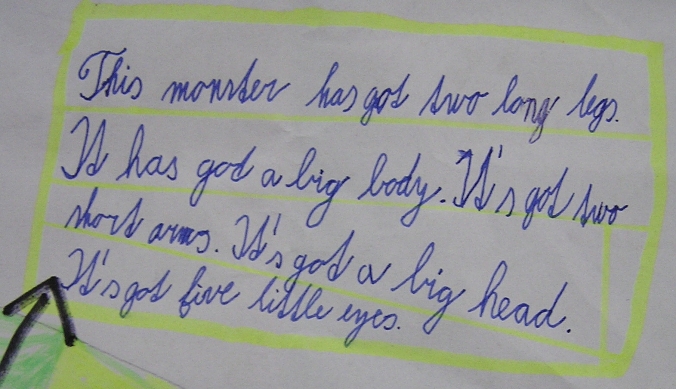 This monster has got two long legs.
It has got a big body. It's got two
short arms. It's got a big head.
It's got five little eyes.